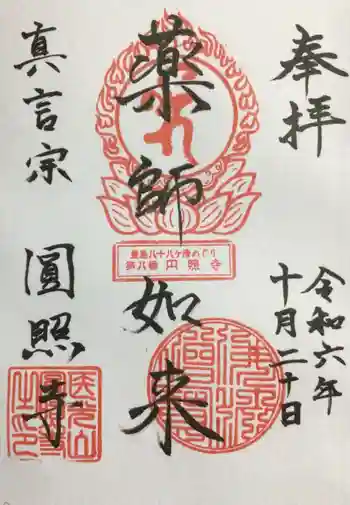 奉拝
令和六年
十月二十日
薬師如来
豊島八十八ヶ所めぐり
第八番 円照寺
真言宗 圓照寺